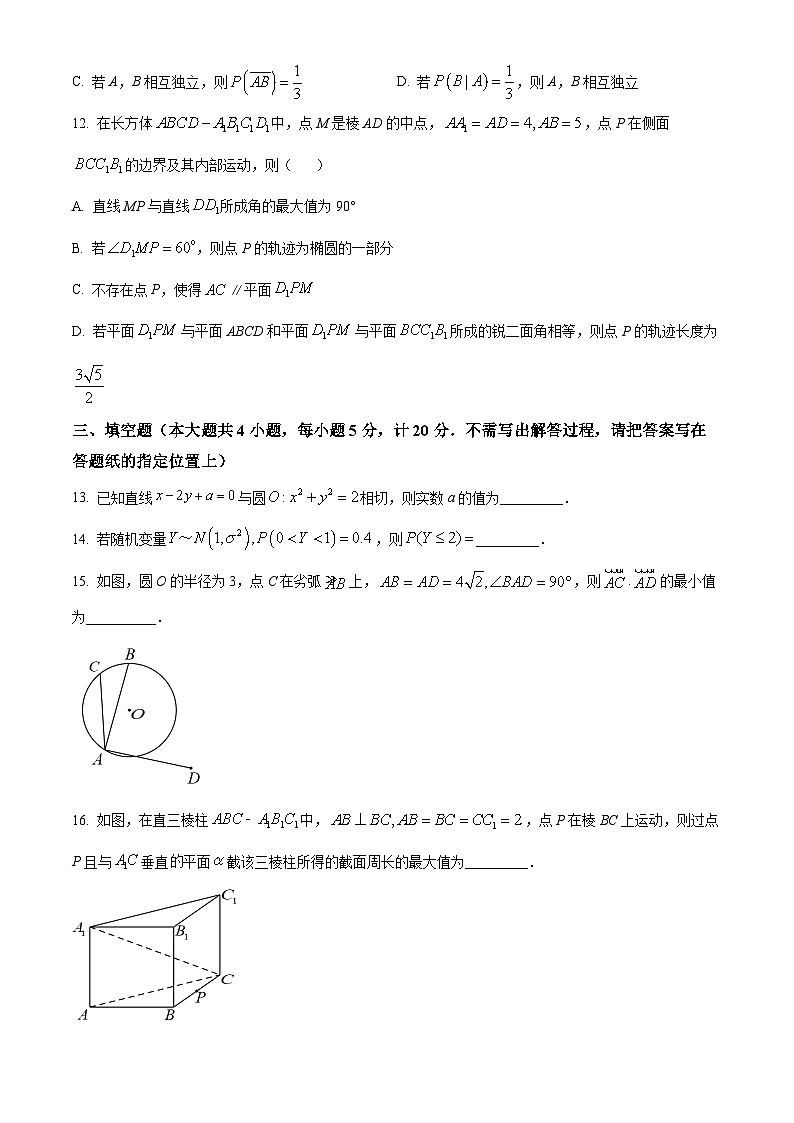 C. 若 A，B 相互独立，则 P(\overline{AB}) = 1/3 D. 若 P(B | A) = 1/3，则 A，B 相互独立
12. 在长方体 ABCD − A₁B₁C₁D₁ 中，点 M 是棱 AD 的中点，AA₁ = AD = 4, AB = 5，点 P 在侧面
BCC₁B₁ 的边界及其内部运动，则（ ）
A. 直线 MP 与直线 DD₁ 所成角的最大值为 90°
B. 若 ∠D₁MP = 60°，则点 P 的轨迹为椭圆的一部分
C. 不存在点 P，使得 AC ∥ 平面 D₁PM
D. 若平面 D₁PM 与平面 ABCD 和平面 D₁PM 与平面 BCC₁B₁ 所成的锐二面角相等，则点 P 的轨迹长度为
3√5/2
三、填空题（本大题共 4 小题，每小题 5 分，计 20 分．不需写出解答过程，请把答案写在
答题纸的指定位置上）
13. 已知直线 x − 2y + a = 0 与圆 O : x² + y² = 2 相切，则实数 a 的值为_________．
14. 若随机变量 Y～N(1, σ²), P(0 < Y < 1) = 0.4，则 P(Y ≤ 2) = _________．
15. 如图，圆 O 的半径为 3，点 C 在劣弧 AB 上，AB = AD = 4√2, ∠BAD = 90°，则 AC · AD 的最小值
为__________．
B
C
O
A
D
16. 如图，在直三棱柱 ABC - A₁B₁C₁ 中，AB ⊥ BC, AB = BC = CC₁ = 2，点 P 在棱 BC 上运动，则过点
P 且与 A₁C 垂直的平面 α 截该三棱柱所得的截面周长的最大值为_________．
C₁
A₁
B₁
C
P
A
B